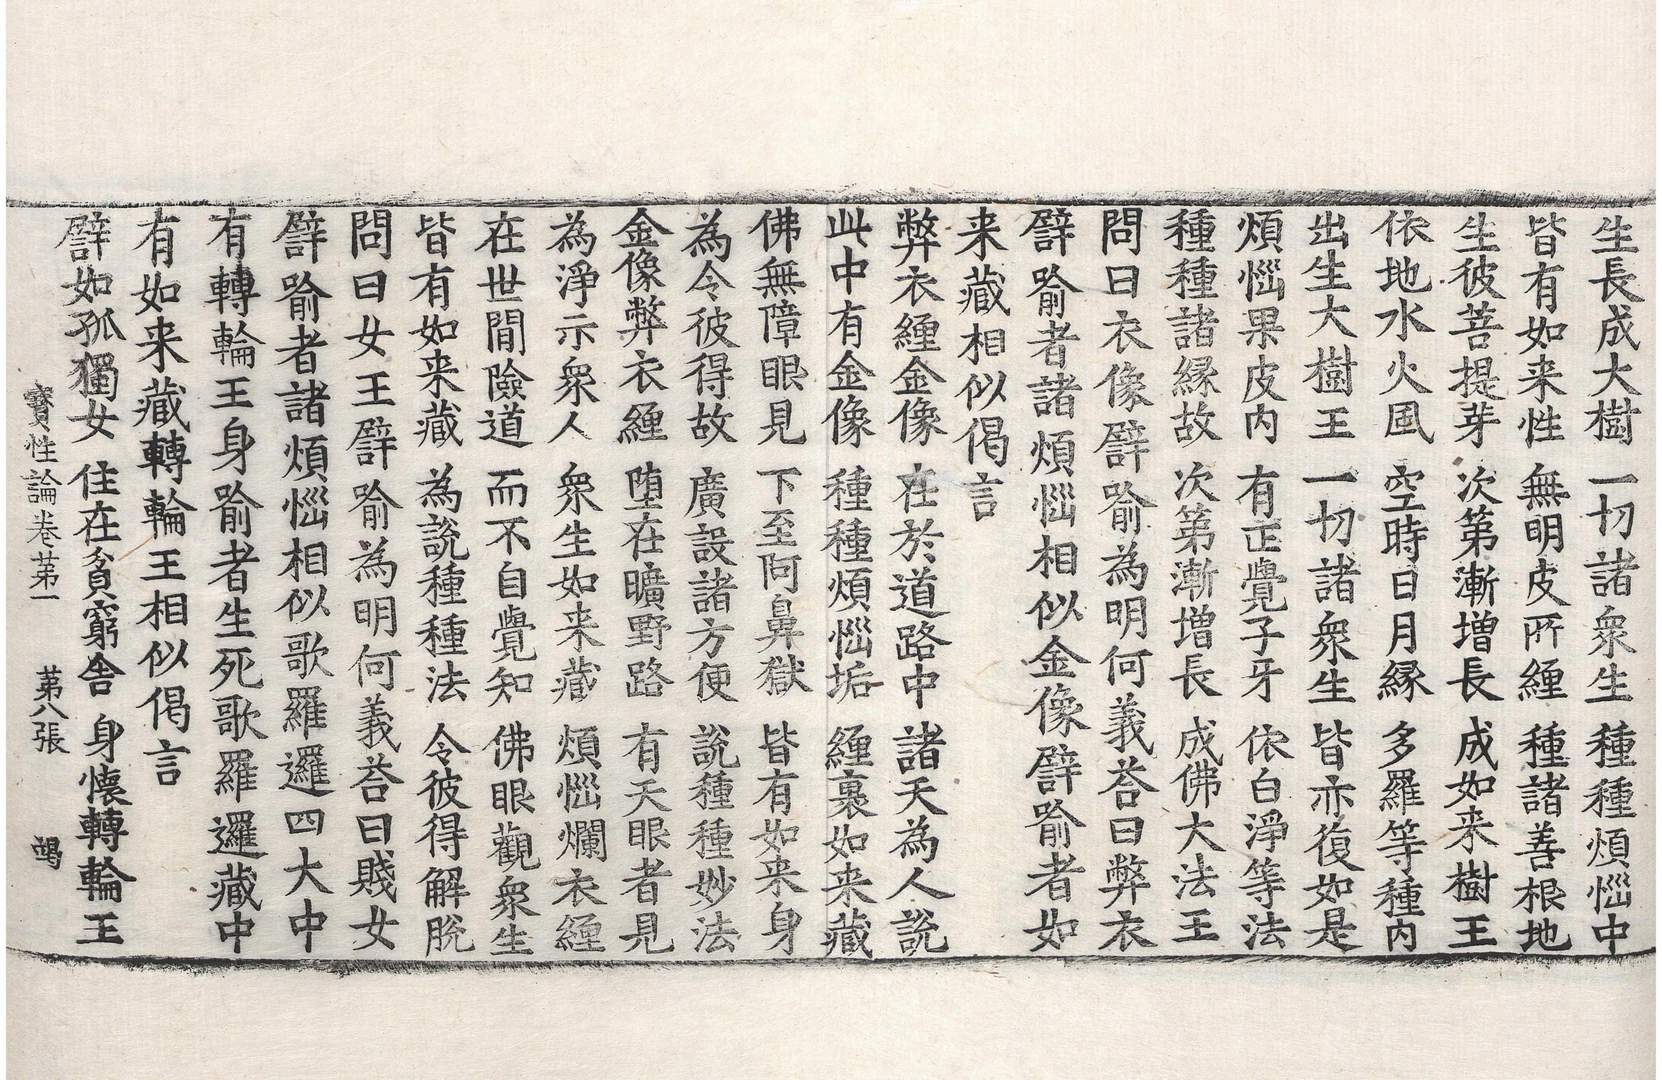 生長成大樹 一切諸衆生 種種煩惱中
皆有如来性 無明皮所纒 種諸善根地
生彼菩提芽 次第漸増長 成如来樹王
依地水火風 空時日月縁 多羅等種内
出生大樹王 一切諸衆生 皆亦復如是
煩惱果皮内 有正覺子牙 依白淨等法
種種諸縁故 次第漸増長 成佛大法王
問曰衣像譬喻為明何義荅曰弊衣
譬喻者諸煩惱相似金像譬喻者如
来藏相似偈言
弊衣纒金像 在於道路中 諸天為人說
此中有金像 種種煩惱垢 纒裹如来藏
佛無障眼見 下至阿鼻獄 皆有如来身
為令彼得故 廣設諸方便 說種種妙法
金像弊衣纒 堕在曠野路 有天眼者見
為淨示衆人 衆生如来藏 煩惱爛衣纒
在世間險道 而不自覺知 佛眼觀衆生
皆有如来藏 為說種種法 令彼得解脫
問曰女王譬喻為明何義荅曰賤女
譬喻者諸煩惱相似歌羅邏四大中
有轉輪王身喻者生死歌羅邏藏中
有如来藏轉輪王相似偈言
譬如孤獨女 住在貧窮舎 身懐轉輪王
寶性論卷苐一 苐八張 竭